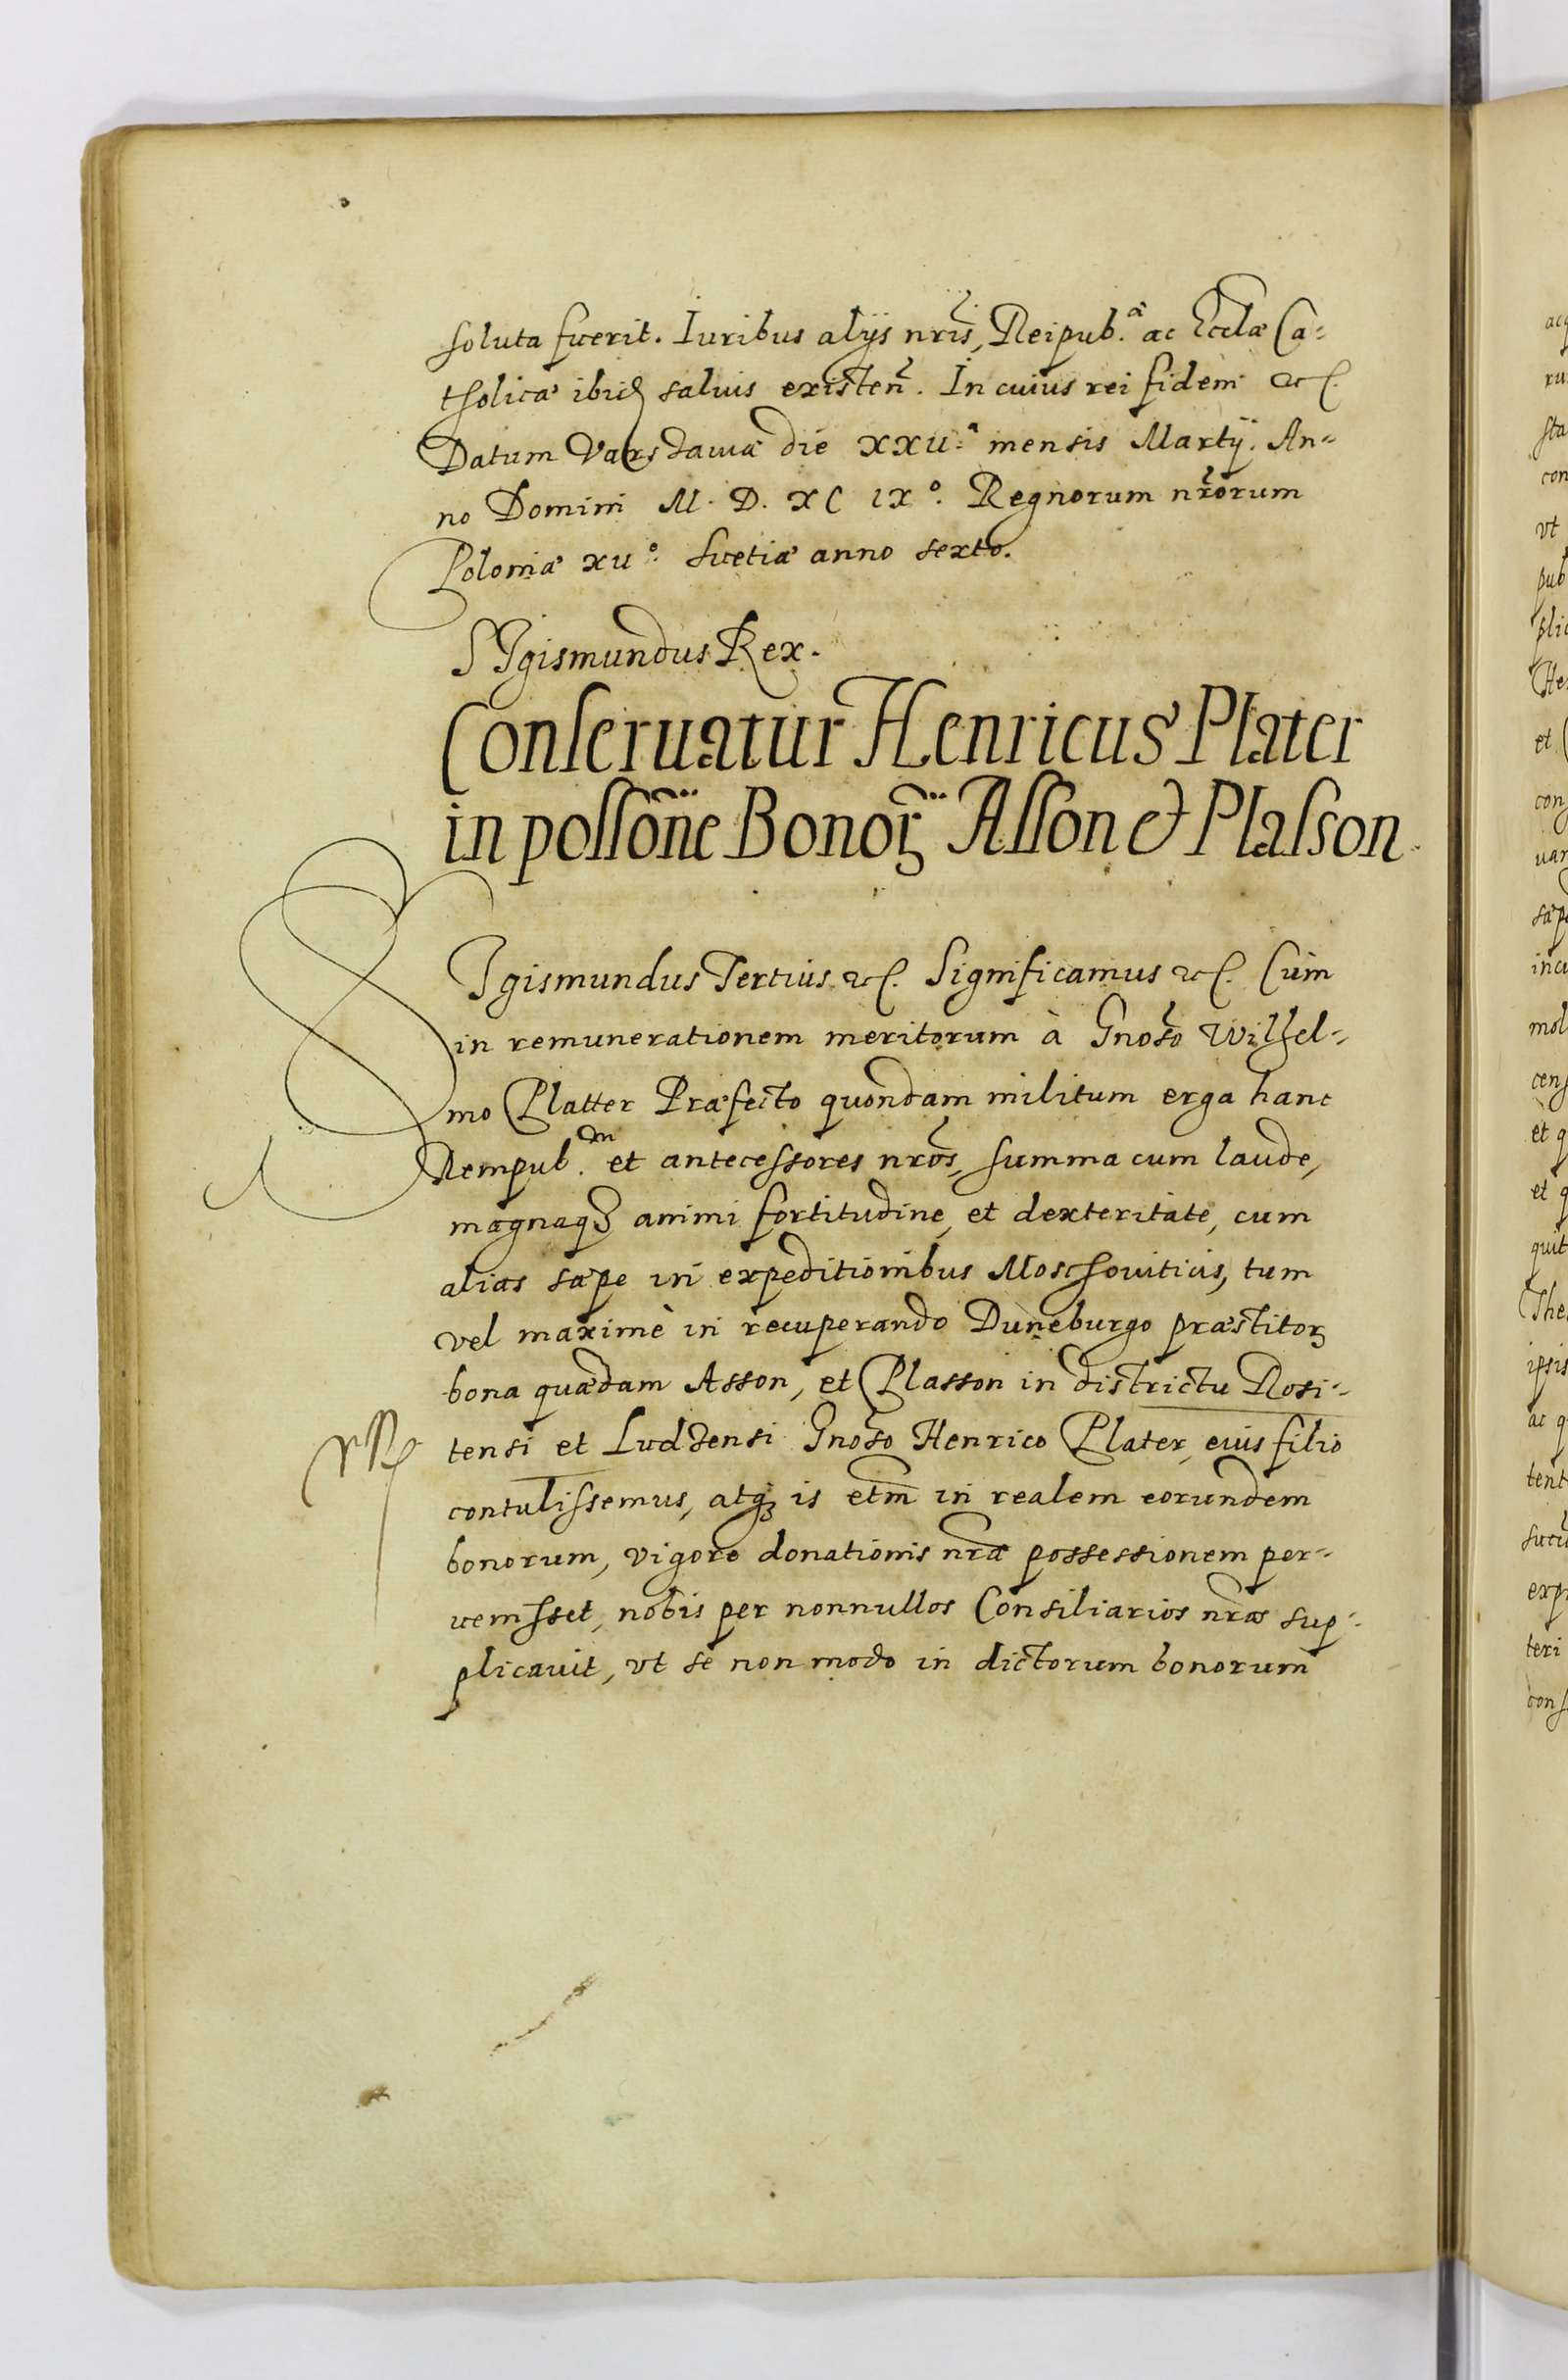 soluta fuerit. Iuribus alijs nris, Reipub.ᵃᵉ ac Eccläe Ca-
tholicæ ibid. saluis existen. In cuius rei fidem etc.
Datum Varsaviæ die XXV.ᵃ mensis Martij. An-
no Domini M. D. XC IX°. Regnorum nrorum
Poloniæ XII°. Suetiæ anno sexto.
SIgismundus Rex.
Conseruatur Henricus Plater
in possone Bonor Asson & Plasson
SIgismundus Tertius etc. Significamus etc. Cùm
in remunerationem meritorum à Gnoso Wilhel-
mo Platter Præfecto quondam militum erga hanc
Rempub.ᵐ et antecessores nros, summa cum laude,
magnaq; animi fortitudine, et dexteritate, cum
alias sæpe in expeditionibus Moschouiticis, tum
vel maximè in recuperando Duneburgo præstitor
bona quædam Asson, et Plasson in districtu Rosi-
tensi et Ludzensi Gnoso Henrico Plater, eius filio
contulissemus, atq; is etm in realem eorundem
bonorum, vigore donationis nræ possessionem per-
uenisset, nobis per nonnullos Consiliarios nros sup-
plicauit, vt se non modo in dictorum bonorum